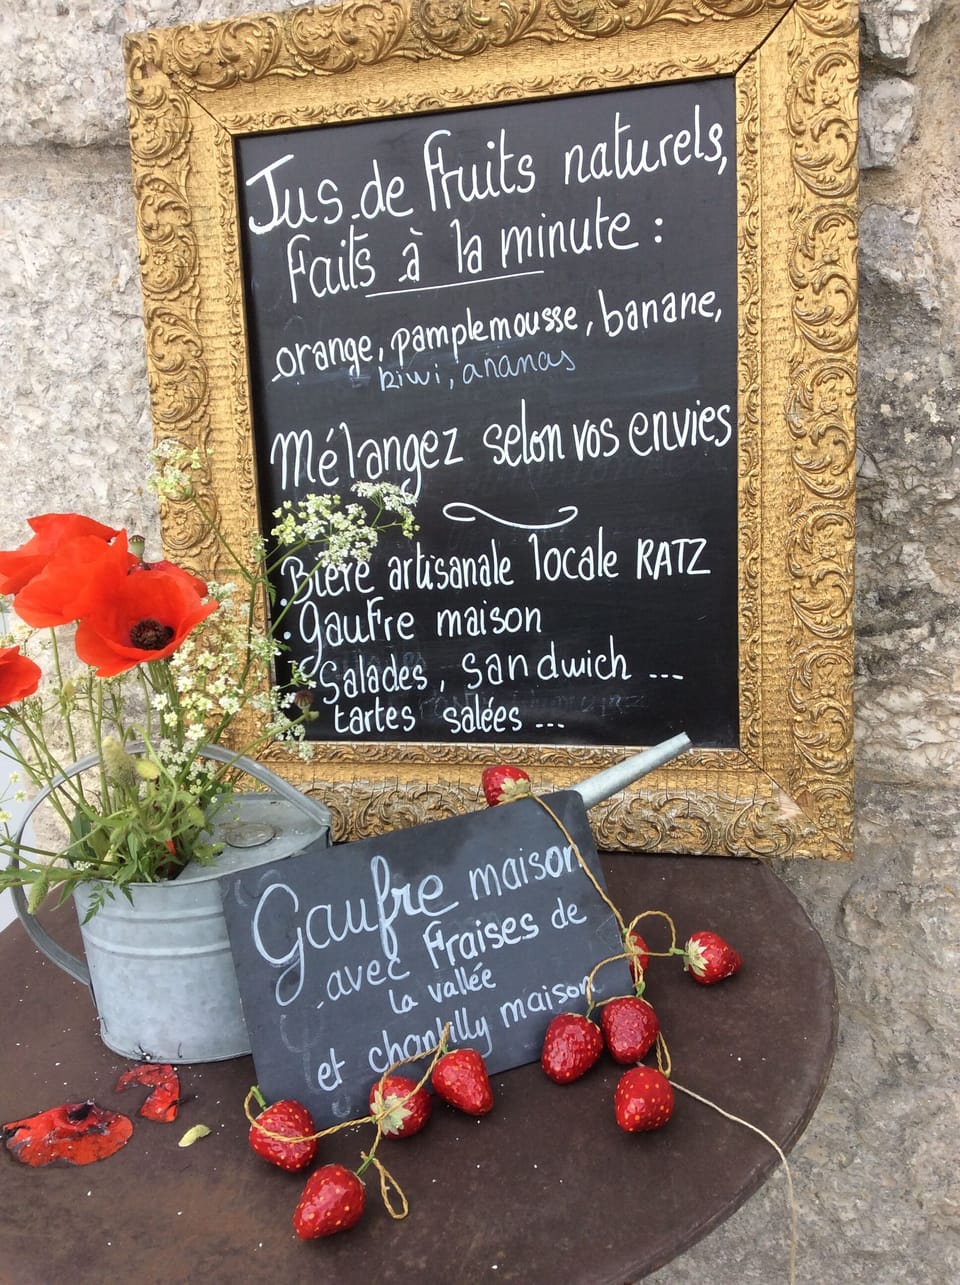 Jus de fruits naturels,
Faits à la minute :
orange, pamplemousse, banane,
kiwi, ananas
Mélangez selon vos envies
. Bière artisanale locale RATZ
. Gaufre maison
. Salades, sandwich ...
tartes salées ...
Gaufre maison
avec Fraises de
la vallée
et chantilly maison